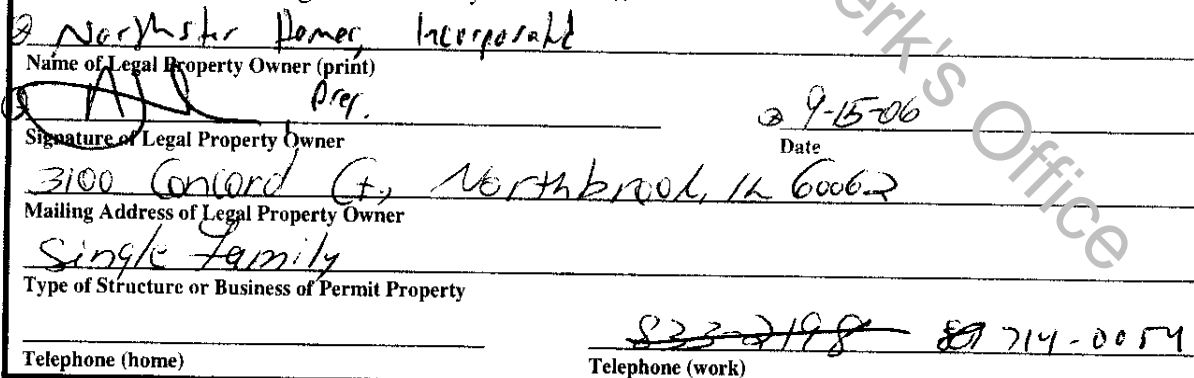 Homes, Incorporated
Name of Legal Property Owner (print)
Pres.
Signature of Legal Property Owner
9-15-06
Date
3100 Concord Ct, Northbrook, IL 60062
Mailing Address of Legal Property Owner
Single Family
Type of Structure or Business of Permit Property
833-2198 714-0054
Telephone (home) Telephone (work)
erk's Office